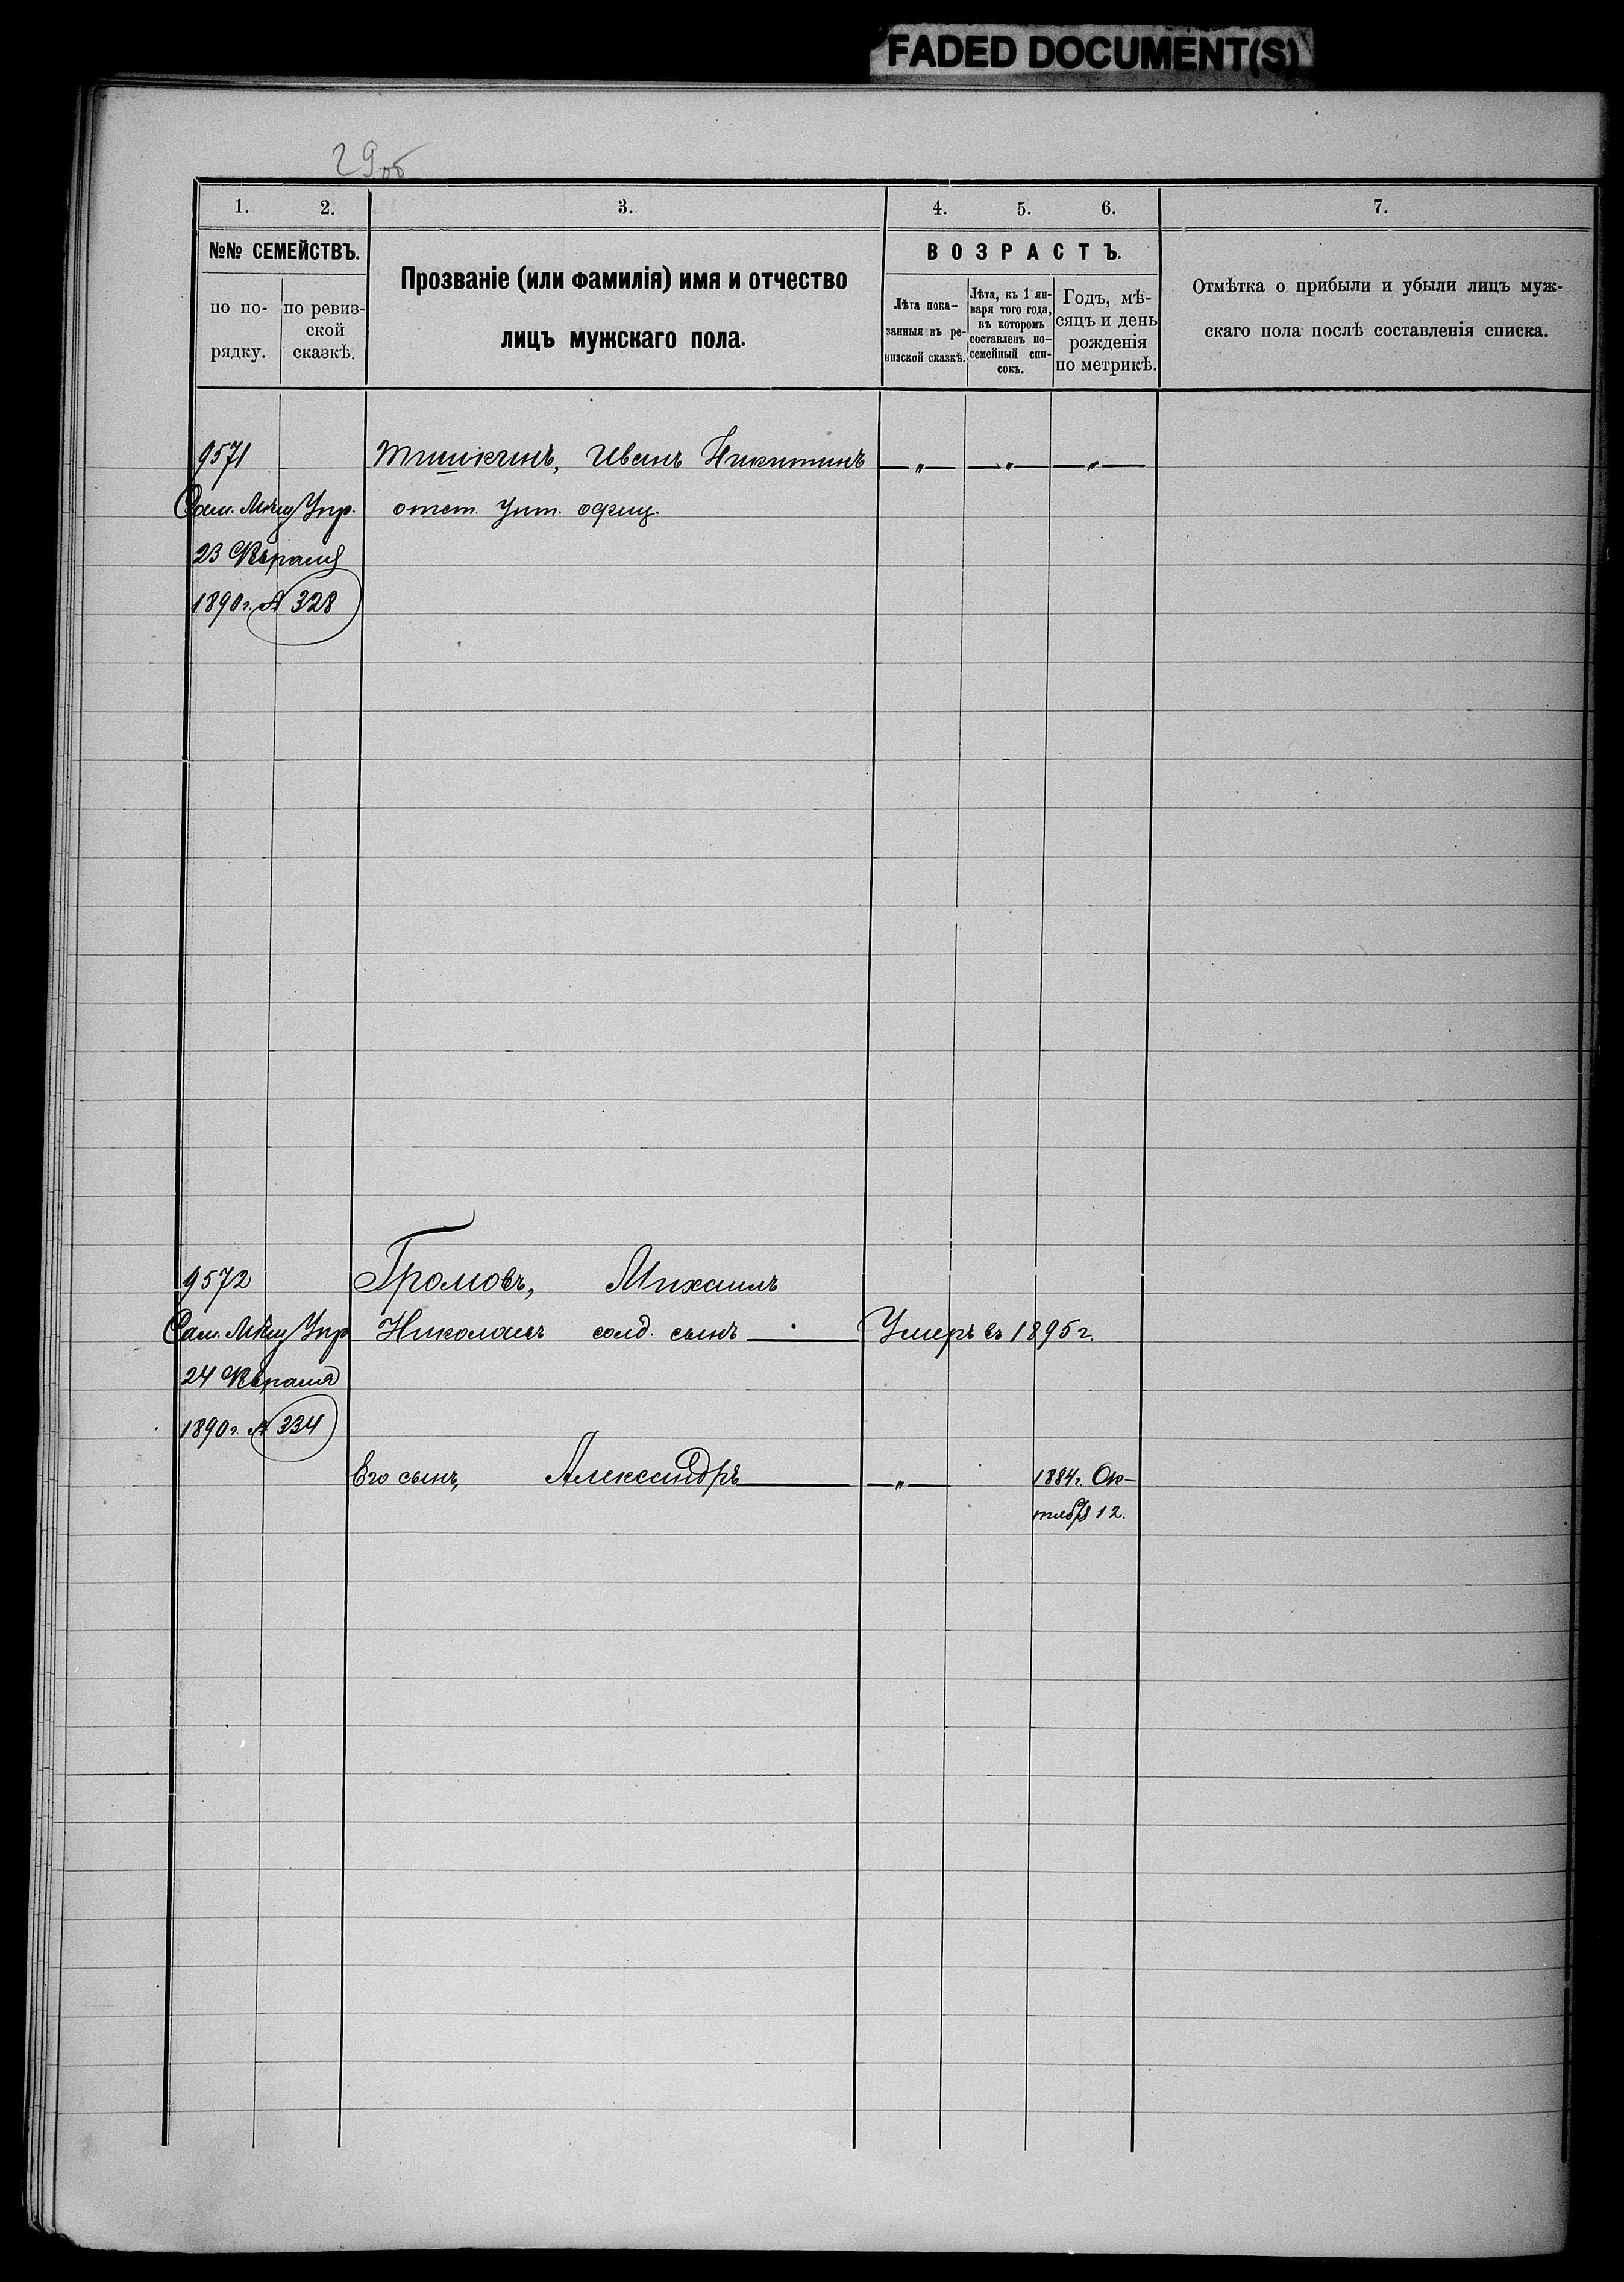 FADED DOCUMENT(S)
29об
1. 2. 3. 4. 5. 6. 7.
№№ СЕМЕЙСТВЪ.
по по-
рядку.
по ревиз-
ской
сказкѣ.
Прозваніе (или фамилія) имя и отчество
лицъ мужскаго пола.
ВОЗРАСТЪ.
Лѣта пока-
занныя въ ре-
визской сказкѣ.
Лѣта, къ 1 ян-
варя того года,
въ которомъ
составленъ по-
семейный спи-
сокъ.
Годъ, мѣ-
сяцъ и день
рожденія
по метрикѣ.
Отмѣтка о прибыли и убыли лицъ муж-
скаго пола послѣ составленія списка.
9571 Тишкинъ, Иванъ Никитинъ — „ — — „ — — „ —
Сам. Мѣщ Упр. отст. Унт. офиц.
23 Февраля
1890 г. № 328
9572 Громовъ, Михаилъ
Сам. Мѣщ Упр Николаевъ солд. сынъ — Умеръ въ 1895 г.
24 Февраля
1890 г. № 334
Его сынъ, Александръ — „ — 1884 г. Ок-
тября 12.